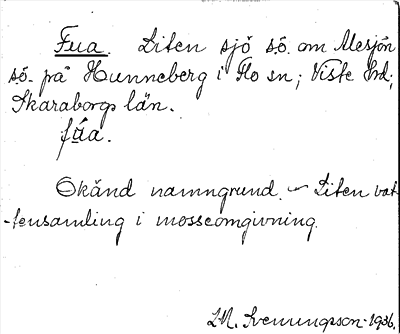 Fua. Liten sjö sö. om Mesjön
sö. på Hunneberg i Flo sn; Viste hd;
Skaraborgs län.
fúa.
Okänd namngrund. Liten vat-
-tensamling i mosseomgivning.
L.M. Svenungsson-1936.